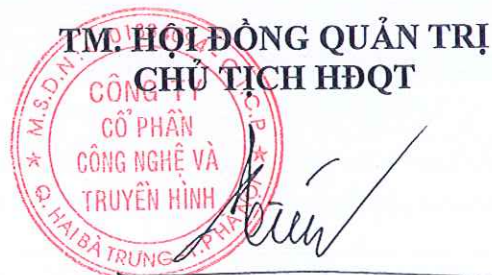 TM. HỘI ĐỒNG QUẢN TRỊ
CHỦ TỊCH HĐQT
CÔNG TY
CỔ PHẦN
CÔNG NGHỆ VÀ
TRUYỀN HÌNH
M.S.D.N:
C.P
Q. HAI BÀ TRƯNG - T.P HÀ NỘI